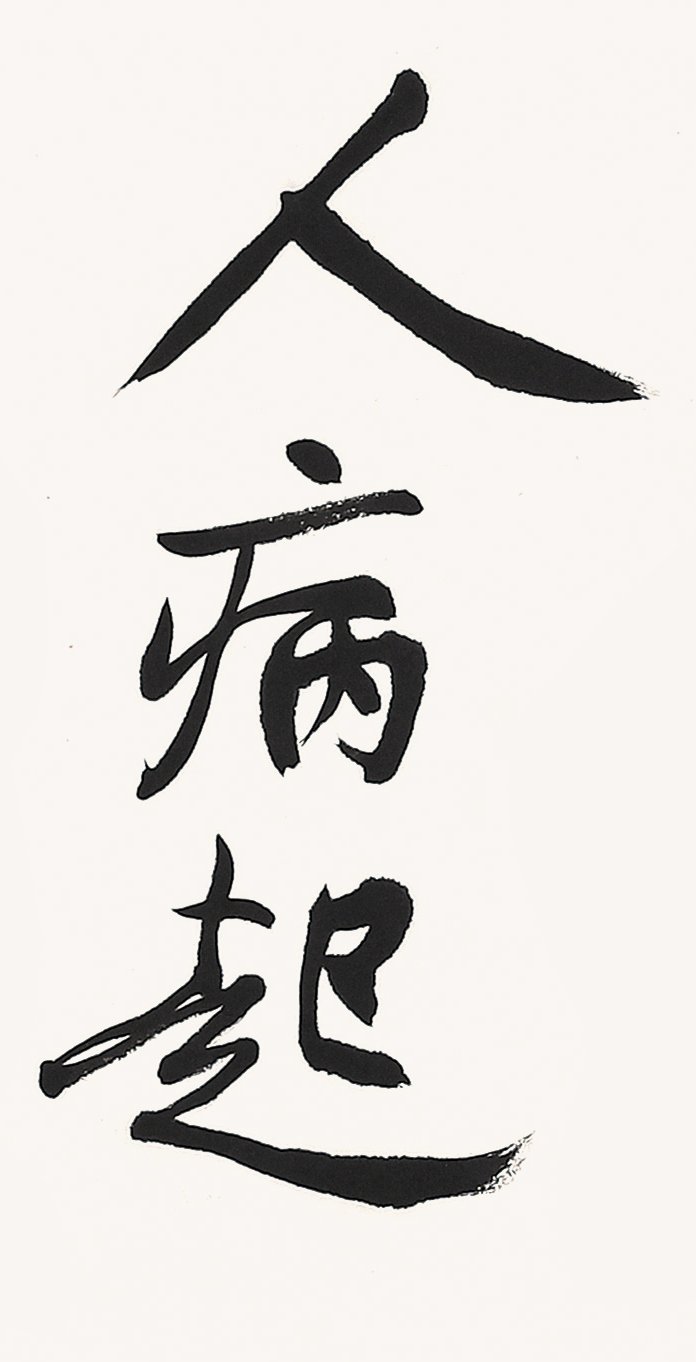 人病起